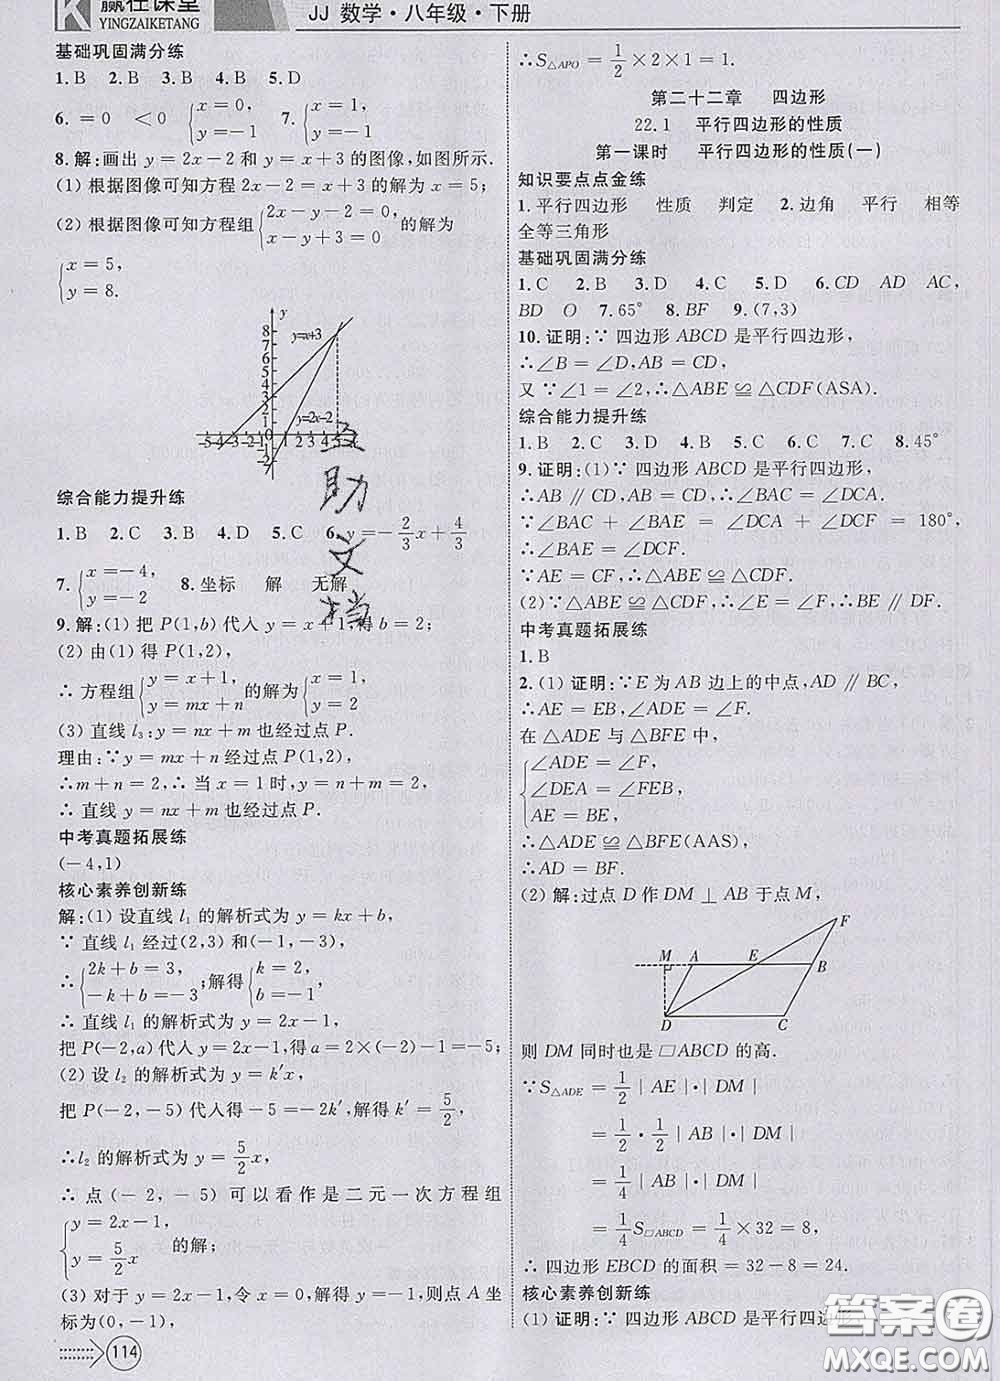 赢在课堂
YINGZAIKETANG
JJ 数学·八年级·下册
基础巩固满分练
1. B 2. B 3. B 4. B 5. D
6. =0 <0 {x=0, y=-1 7. {x=1, y=-1
8. 解:画出 y=2x-2 和 y=x+3 的图像,如图所示.
(1) 根据图像可知方程 2x-2=x+3 的解为 x=5;
(2) 根据图像可知方程组{2x-y-2=0, x-y+3=0 的解为
{x=5, y=8.
y
8
7
6
5
4
3
2
1
0
-1
-2
y=x+3
y=2x-2
-5-4-3-2-1 1 2 3 4 5 x
综合能力提升练
1. B 2. C 3. B 4. D 5. C 6. y=-2/3x+4/3
7. {x=-4, y=-2 8. 坐标 解 无解
9. 解:(1) 把 P(1,b) 代入 y=x+1,得 b=2;
(2) 由(1) 得 P(1,2),
∴ 方程组{y=x+1, y=mx+n 的解为{x=1, y=2
(3) 直线 l₃:y=nx+m 也经过点 P.
理由:∵y=mx+n 经过点 P(1,2),
∴m+n=2,∴ 当 x=1 时,y=n+m=2,
∴ 直线 y=nx+m 也经过点 P.
中考真题拓展练
(-4,1)
核心素养创新练
解:(1) 设直线 l₁ 的解析式为 y=kx+b,
∵ 直线 l₁ 经过(2,3) 和(-1,-3),
∴{2k+b=3, -k+b=-3 解得{k=2, b=-1
∴ 直线 l₁ 的解析式为 y=2x-1,
把 P(-2,a) 代入 y=2x-1,得 a=2×(-2)-1=-5;
(2) 设 l₂ 的解析式为 y=k′x,
把 P(-2,-5) 代入得-5=-2k′,解得 k′=5/2,
∴l₂ 的解析式为 y=5/2x,
∴ 点 (-2,-5) 可以看作是二元一次方程组
{y=2x-1, y=5/2x 的解;
(3) 对于 y=2x-1,令 x=0,解得 y=-1,则点 A 坐
标为(0,-1),
114
∴S△APO=1/2×2×1=1.
第二十二章 四边形
22.1 平行四边形的性质
第一课时 平行四边形的性质(一)
知识要点点金练
1. 平行四边形 性质 判定 2. 边角 平行 相等
全等三角形
基础巩固满分练
1. C 2. B 3. D 4. C 5. D 6. CD AD AC,
BD O 7. 65° 8. BF 9. (7,3)
10. 证明:∵ 四边形 ABCD 是平行四边形,
∴∠B=∠D,AB=CD,
又 ∵∠1=∠2,∴△ABE≌△CDF(ASA).
综合能力提升练
1. B 2. C 3. D 4. B 5. C 6. C 7. C 8. 45°
9. 证明:(1)∵ 四边形 ABCD 是平行四边形,
∴AB∥CD,∴∠BAC=∠DCA.
∵∠BAC+∠BAE=∠DCA+∠DCF=180°,
∴∠BAE=∠DCF.
∵AE=CF,∴△ABE≌△CDF.
(2)∵△ABE≌△CDF,∴∠E=∠F,∴BE∥DF.
中考真题拓展练
1. B
2. (1) 证明:∵E 为 AB 边上的中点,AD∥BC,
∴AE=EB,∠ADE=∠F.
在 △ADE 与 △BFE 中,
{∠ADE=∠F, ∠DEA=∠FEB, AE=BE,
∴△ADE≌△BFE(AAS)
∴AD=BF.
(2) 解:过点 D 作 DM⊥AB 于点 M,
F
M A E B
D C
则 DM 同时也是 □ABCD 的高.
∵S△ADE=1/2|AE|·|DM|
=1/2·1/2|AB|·|DM|
=1/4|AB|·|DM|
=1/4S□ABCD=1/4×32=8,
∴ 四边形 EBCD 的面积=32-8=24.
核心素养创新练
(1) 证明:∵ 四边形 ABCD 是平行四边形,
互助文档
答案圈
MXQE.COM